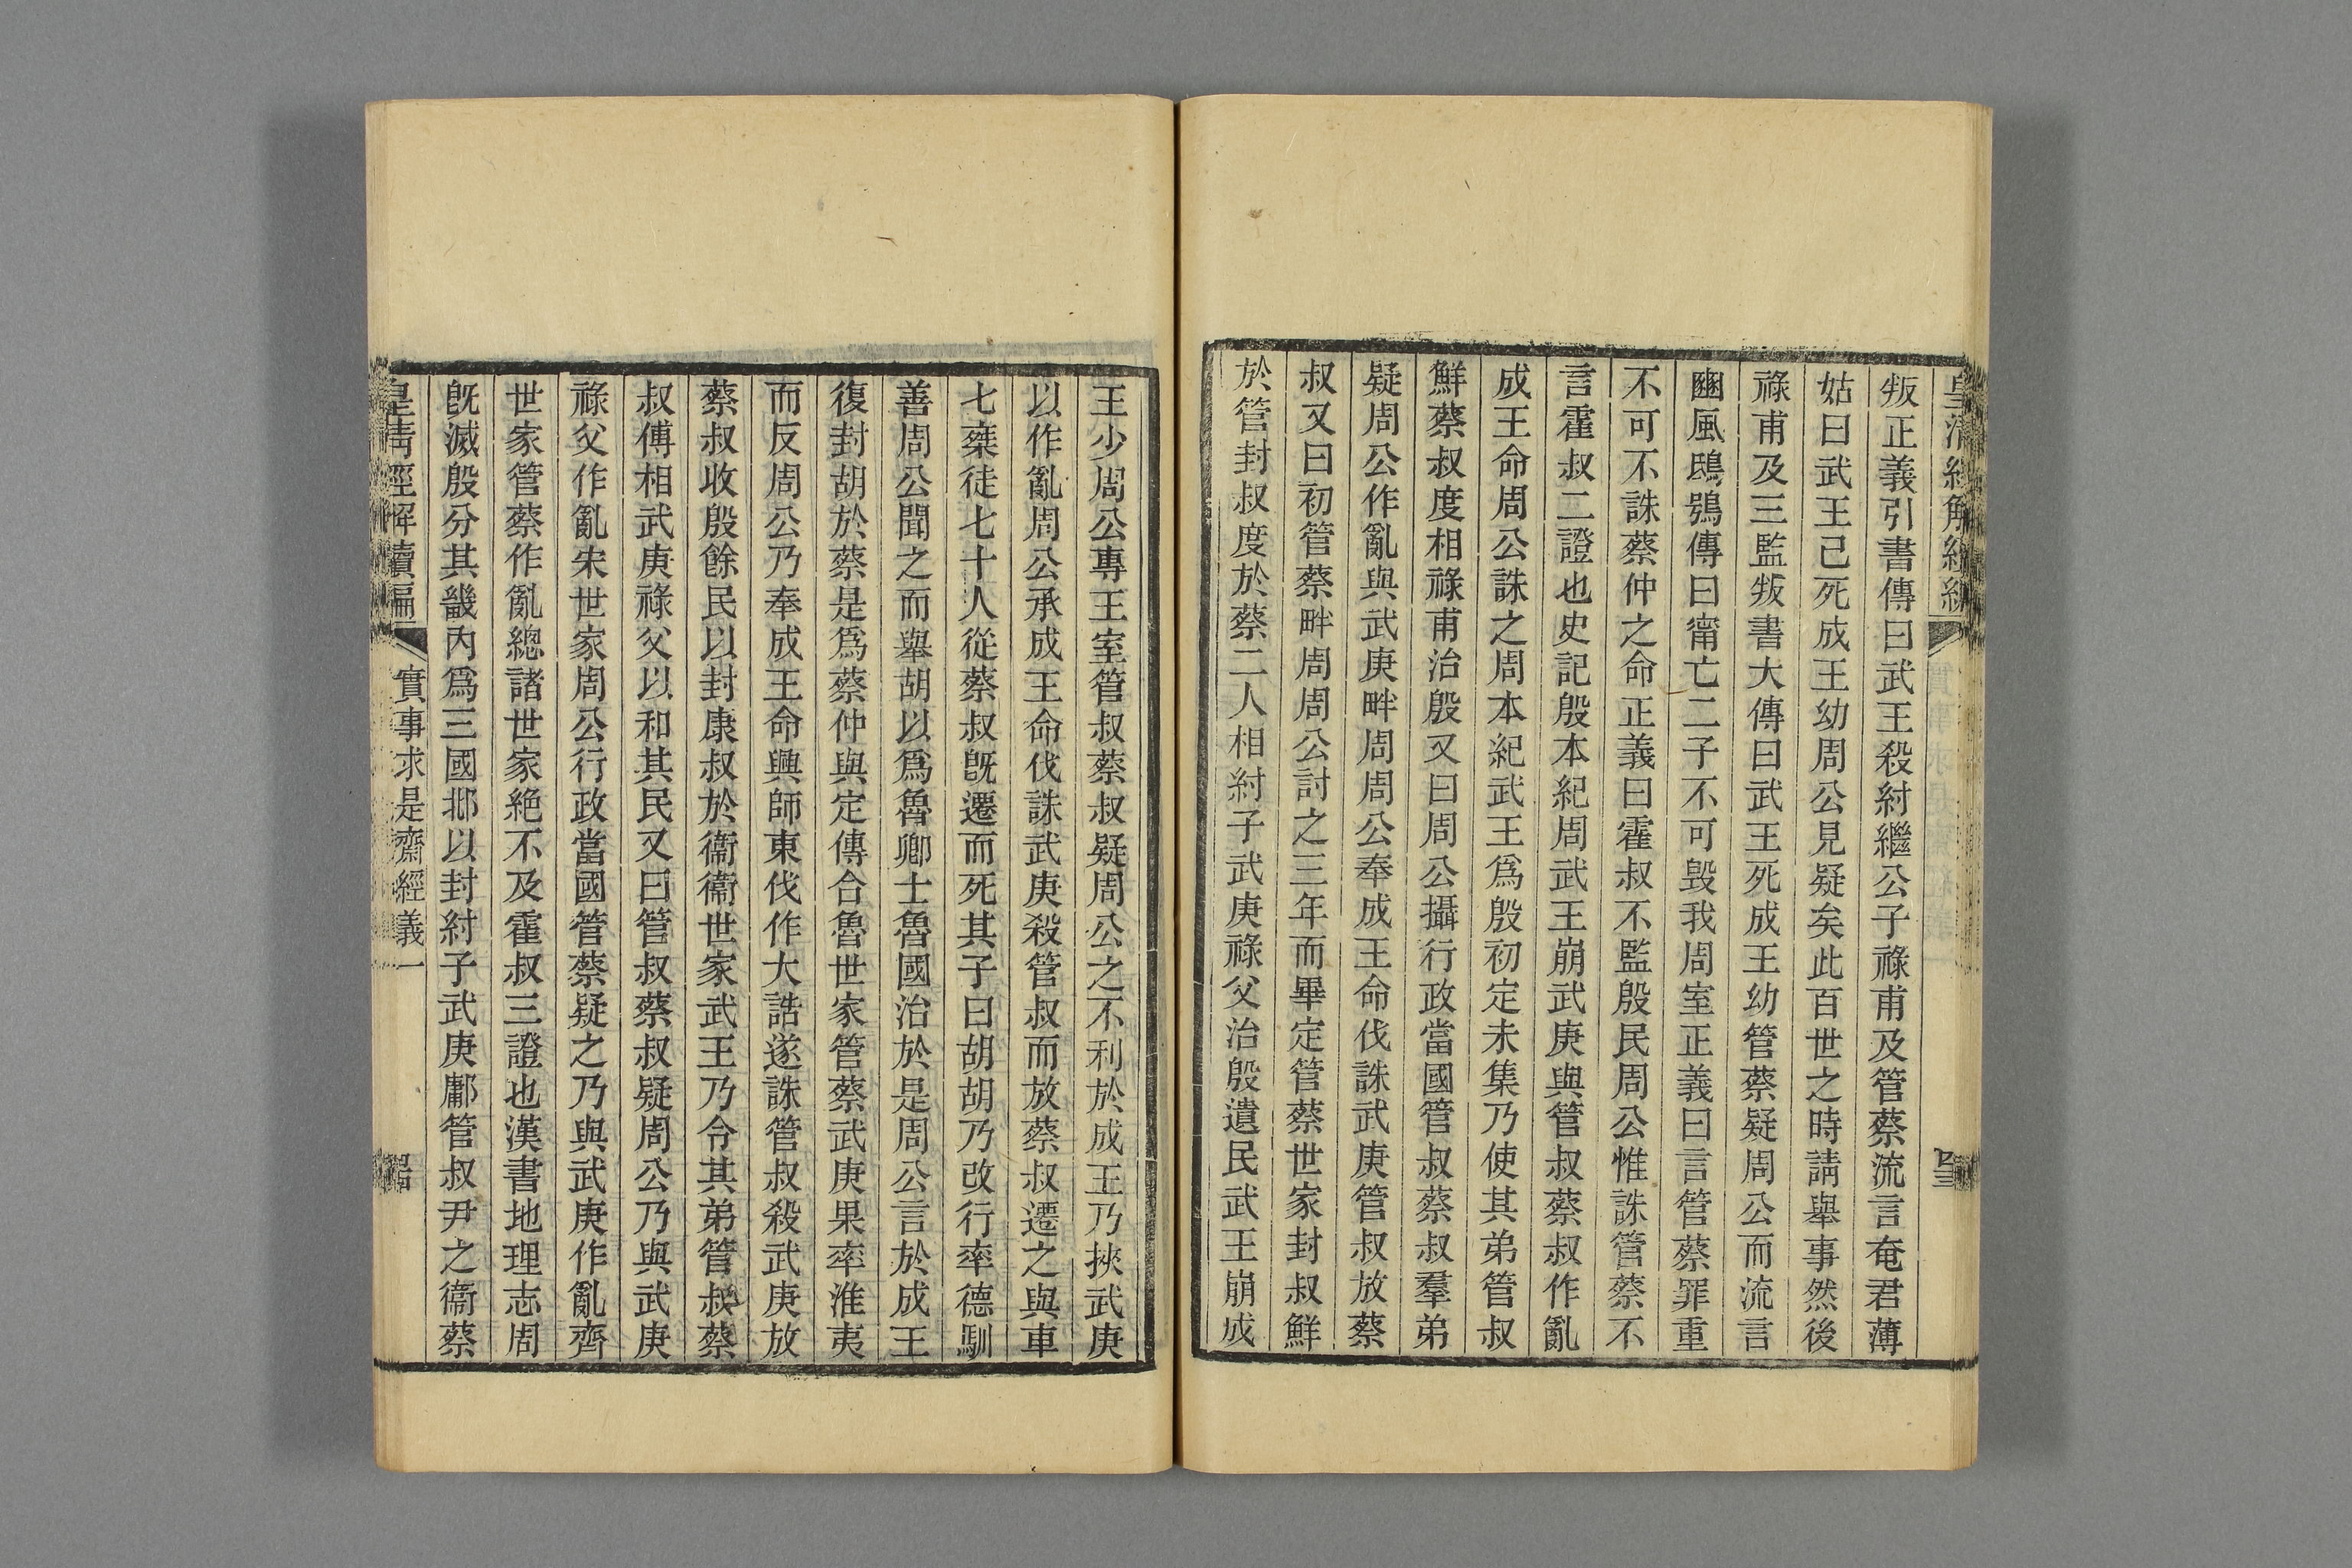 叛正義引書傳曰武王殺紂繼公子祿甫及管蔡流言奄君薄
姑曰武王已死成王幼周公見疑矣此百世之時請舉事然後
祿甫及三監叛書大傳曰武王死成王幼管蔡疑周公而流言
豳風鴟鴞傳曰甯亡二子不可毀我周室正義曰言管蔡罪重
不可不誅蔡仲之命正義曰霍叔不監殷民周公惟誅管蔡不
言霍叔二證也史記殷本紀周武王崩武庚與管叔蔡叔作亂
成王命周公誅之周本紀武王為殷初定未集乃使其弟管叔
鮮蔡叔度相祿甫治殷又曰周公攝行政當國管叔蔡叔羣弟
疑周公作亂與武庚畔周周公奉成王命伐誅武庚管叔放蔡
叔又曰初管蔡畔周周公討之三年而畢定管蔡世家封叔鮮
於管封叔度於蔡二人相紂子武庚祿父治殷遺民武王崩成
王少周公專王室管叔蔡叔疑周公之不利於成王乃挾武庚
以作亂周公承成王命伐誅武庚殺管叔而放蔡叔遷之與車
七椉徒七十人從蔡叔旣遷而死其子曰胡胡乃改行率德馴
善周公聞之而舉胡以爲魯卿士魯國治於是周公言於成王
復封胡於蔡是爲蔡仲與定傳合魯世家管蔡武庚果率淮夷
而反周公乃奉成王命興師東伐作大誥遂誅管叔殺武庚放
蔡叔收殷餘民以封康叔於衞衞世家武王乃令其弟管叔蔡
叔傅相武庚祿父以和其民又曰管叔蔡叔疑周公乃與武庚
祿父作亂宋世家周公行政當國管蔡疑之乃與武庚作亂齊
世家管蔡作亂總諸世家絶不及霍叔三證也漢書地理志周
旣滅殷分其畿内爲三國邶以封紂子武庚鄘管叔尹之衞蔡
皇清經解續編 實事求是齋經義一